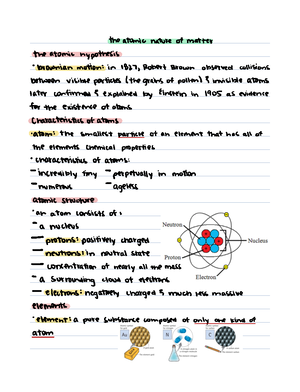 the atomic nature of matter
the atomic hypothesis
• brownian motion: in 1827, Robert Brown observed collisions
between visible particles (the grains of pollen) & invisible atoms
later confirmed & explained by Einstein in 1905 as evidence
for the existence of atoms
Characteristics of atoms
• atom: the smallest particle of an element that has all of
the elements chemical properties
• characteristics of atoms:
– incredibly tiny – perpetually in motion
– numerous – ageless
atomic structure
• an atom consists of:
– a nucleus
– protons: positively charged
– neutrons: in neutral state
– concentration of nearly all the mass
– a surrounding cloud of electrons
– electrons: negatively charged & much less massive
Neutron
Nucleus
Proton
Electron
elements
• element: a pure substance composed of only one kind of
atom
Au
N
C